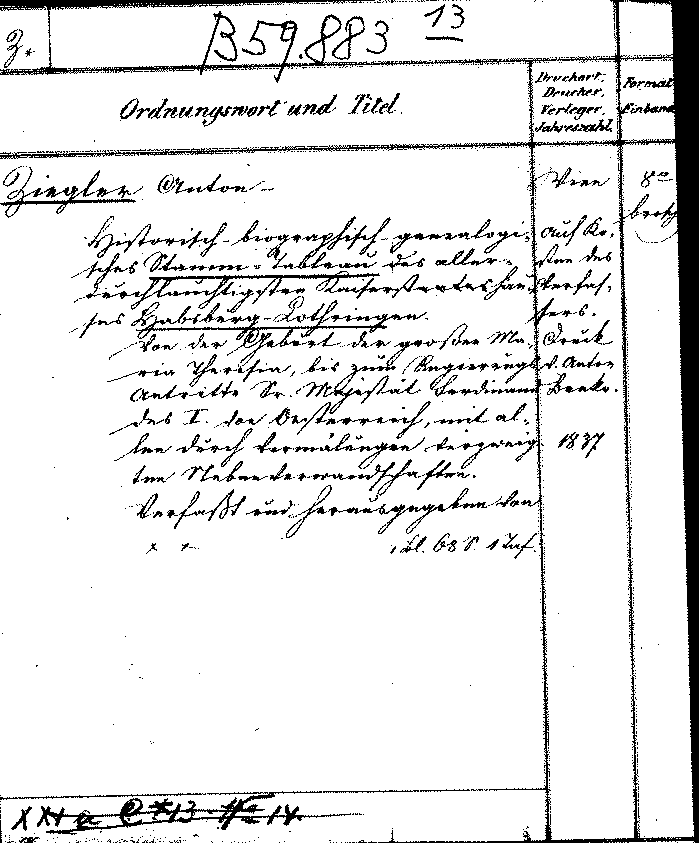 Z.
B59.883 13
Ordnungswort und Titel.
Druckort,
Drucker,
Verleger,
Jahreszahl.
Format
Einband
Ziegler Anton –
Historisch-biographisch-genealogi-
sches Stamm-Tableau des aller-
durchlauchtigsten Kaiserstaateshau-
ses Habsburg-Lothringen.
Von der Geburt der großen Ma-
ria Theresia, bis zum Regierungs
Antritte Sr. Majestät Ferdinand
des I. von Oesterreich, mit al-
len durch Vermälungen verzweig-
ten Nebenverwandschaften.
Verfaßt und herausgegeben von
x x
1 Bl. 68 S. 1 Taf.
Wien
Auf Ko-
sten des
Verfas-
sers.
Druck
v. Anton
Benko.
1837
8°
brosch